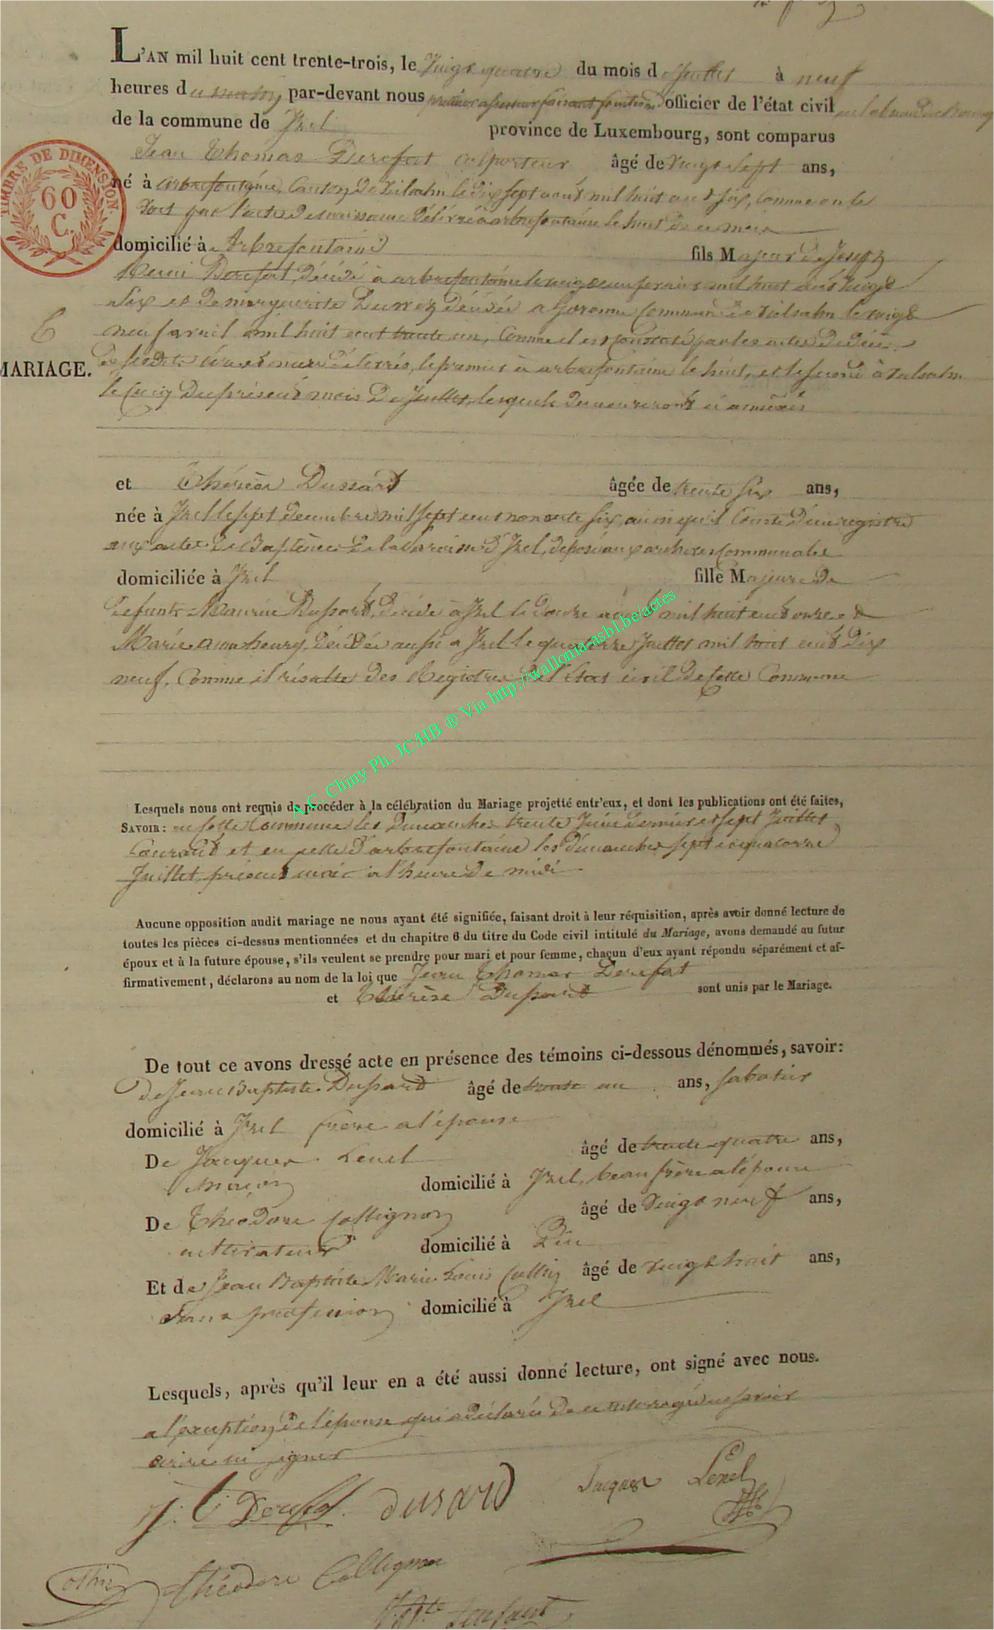 L'AN mil huit cent trente-trois, le vingt quatre du mois de juillet à neuf
heures du matin, par-devant nous premier assesseur faisant fonctions officier de l'état civil
de la commune de Izel province de Luxembourg, sont comparus
Jean Thomas Derefat colporteur âgé de vingt sept ans,
né à arbrefontaine, Canton de vielsalm le dix sept août mil huit cent six, comme on le
voit par l'acte de naissance délivré à arbrefontaine le huit de ce mois
domicilié à Arbrefontaine fils Majeur de Joseph
Henri Derefat, décédé à arbrefontaine le mil huit cent vingt
six et de marguerite décédée a Goronne Commune de vielsalm le vingt
neuf avril mil huit cent trente un, comme il est constaté par les actes de décès
de ses dits père et mère délivrés, le premier à arbrefontaine le huit, et le second à vielsalm
le cinq du présent mois de Juillet, lesquels demeureront ci annexés
6
MARIAGE.
TIMBRE DE DIMENSION.
60
C.
et Thérèse Dussart âgée de trente six ans,
née à Izel le sept decembre mil sept cent nonante six, ainsi qu'il Conste d'un registre
aux actes de Baptêmes de la paroisse d'Izel, déposé aux archives Communales
domiciliée à Izel fille Majeure de
defunts Maurice Dussart, décédé à Izel le douze août mil huit cent onze et
Marie décédée aussi a Izel le quatorze Juillet mil huit cent dix
neuf, Comme il résulte des Registres de l'état civil de cette Commune
A.C. Chiny Ph. JC.HB @ Via http://wallonia-asbl.be/actes
Lesquels nous ont requis de procéder à la célébration du Mariage projetté entr'eux, et dont les publications ont été faites,
SAVOIR: en cette Commune les Dimanches trente Juin dernier et sept Juillet
Courant et en celle d'arbrefontaine les dimanches sept et quatorze
Juillet présent mois à l'heure de midi
Aucune opposition audit mariage ne nous ayant été signifiée, faisant droit à leur réquisition, après avoir donné lecture de
toutes les pièces ci-dessus mentionnées et du chapitre 6 du titre du Code civil intitulé du Mariage, avons demandé au futur
époux et à la future épouse, s'ils veulent se prendre pour mari et pour femme, chaçun d'eux ayant répondu séparément et af-
firmativement, déclarons au nom de la loi que Jean Thomas Derefat
et Thérèse Dussart sont unis par le Mariage.
De tout ce avons dressé acte en présence des témoins ci-dessous dénommés, savoir:
de Jean Baptiste Dussart âgé de trente un ans, sabotier
domicilié à Izel frère a l'épouse
De Jacques Lenel âgé de trente quatre ans,
maçon domicilié à Izel, beau frère a l'épouse
De Théodore Collignon âgé de vingt neuf ans,
cultivateur domicilié à Pin
Et de Jean Baptiste Marie Louis âgé de vingt huit ans,
sans profession domicilié à Izel
Lesquels, après qu'il leur en a été aussi donné lecture, ont signé avec nous.
a l'exception de l'épouse qui a déclarée de ce interrogée ne savoir
écrire ni signer
J. t Derefat. dusard Jacques Lenel
théodore Collignon